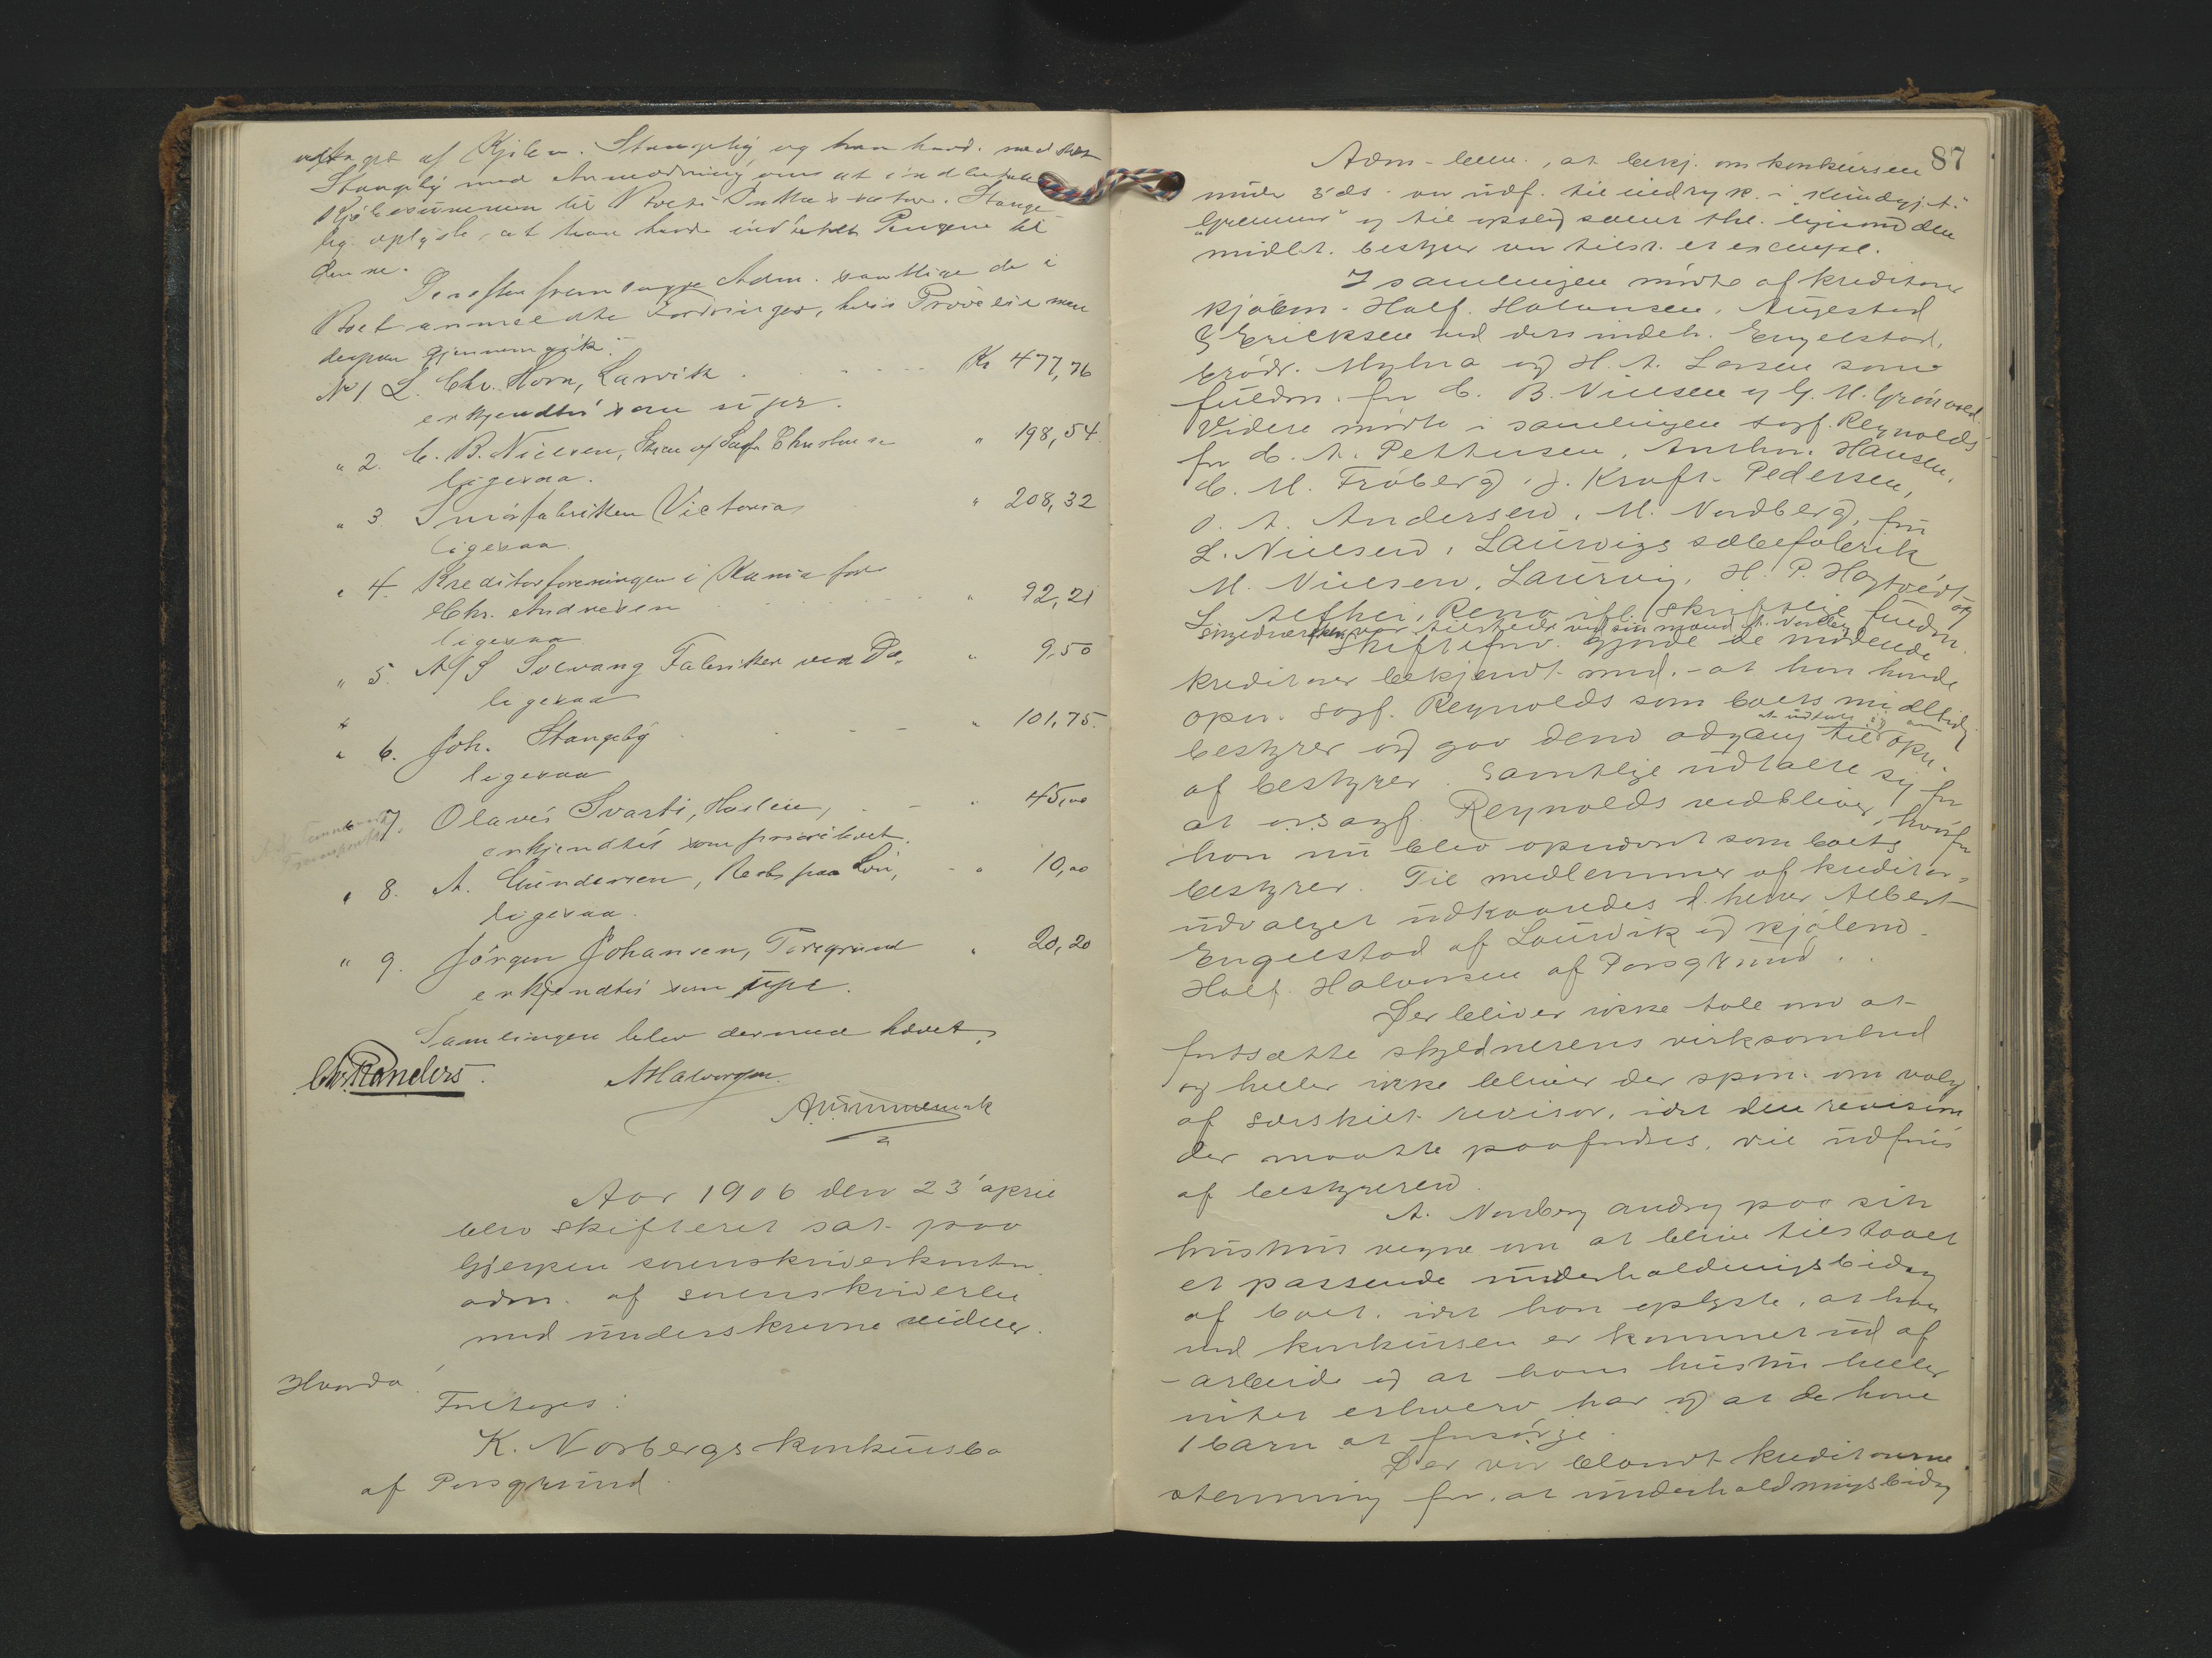 af Kjøbm. Stangeby og han havde
Stangeby med Anmodning om at indbetale
Kjøbesummen til Boets Inkassator. Stange-
by oplyste, at han havde indbetalt Pengene til
denne.
Derefter fremlagde Adm. samtlige de i
Boet anmeldte Fordringer, hvis Prøvelse man
derpaa gjennemgik:
No 1 L. Chr. Horn, Larvik Kr 477,76
erkjendtes som upr.
" 2. C. B. Nielsen, Skien " 198,54.
ligesaa.
" 3 Smørfabrikken Victoria " 208,32
ligesaa.
" 4. Kreditorforeningen i Kania for
Chr. Andresen " 92,21
ligesaa
" 5. A/S Solvang Fabriker ved Do. " 9,50
ligesaa
" 6. Joh. Stangeby " 101,75.
ligesaa
" 7. Olaves Svarti, " 45,00
erkjendtes som prioritet.
" 8. A. Gundersen, " 10,00
ligesaa.
" 9. Jörgen Johansen, Porsgrund " 20,20
erkjendtes som upr.
Samlingen blev dermed hævet.
Chr. Randers. AHalvorsen.
Aar 1906 den 23 april
blev skifteret sat paa
Gjerpen sorenskriverkontor
adm. af sorenskriveren
med underskrevne vidner.
Hvorda!
Foretoges:
K. Norbergs konkursbo
af Porsgrund.
87
Adm. bem., at bekj. om konkursen
under 5 ds. var udf. til indryk. i "Kundgj.t."
"Grenmar" og til opslag samt thl. ligesom den
midlert. bestyrer var tilst. et exempl.
I samlingen mödte af kreditorer
kjöbm. Half. Halvorsen, Augestad
& Ericksen ved ders indeh. Engelstad,
brödr. Myhra og H. A. Larsen som
fuldm. for C. B. Nielsen og G. M. Grönvold.
Videre mödte i samlingen sagf. Reynolds
for C. A. Pettersen, Anthon Hansen,
C. M. Fröberg, J. Kraft Pedersen,
O. A. Andersen, M. Nordberg, fru
L. Nielsen, Laurvigs sæbefabrik
M. Nielsen, Laurvig, H. P. Hogtvedt og
L. skriftlige fuldm.
var tilstede ved sin mand A. Norberg
Skifteforv. gjorde de mödende
kreditorer bekjendt med, at han havde
opn. sagf. Reynolds som boets midltidig
bestyrer og gav dem adgang til at udtale sig om opn.
af bestyrer. Samtlige udtalte sig for
at o.r.sagf. Reynolds vedbliver, hvorfor
han nu blev opnævnt som boets
bestyrer. Til medlemmer af kreditor-
udvalget udkaaredes d'herrer Albert
Engelstad af Laurvik og kjöbm.
Half. Halvorsen af Porsgrund.
Der bliver ikke tale om at
fortsætte skyldnerens virksomhed
og heller ikke bliver der spm. om valg
af særskilt revisor, idet den revision
der maatte paafordres, vil udföres
af bestyreren.
A. Norberg androg paa sin
hustrus vegne om at blive tilstaaet
et passende underholdningsbidrag
af boet, idet han oplyste, at han
ved konkursen er kommet ud af
arbeide og at hans hustru heller
intet erhverv har og at de have
1 barn at forsörge.
Der var blandt kreditorerne
stemning for, at underholdningsbidrag